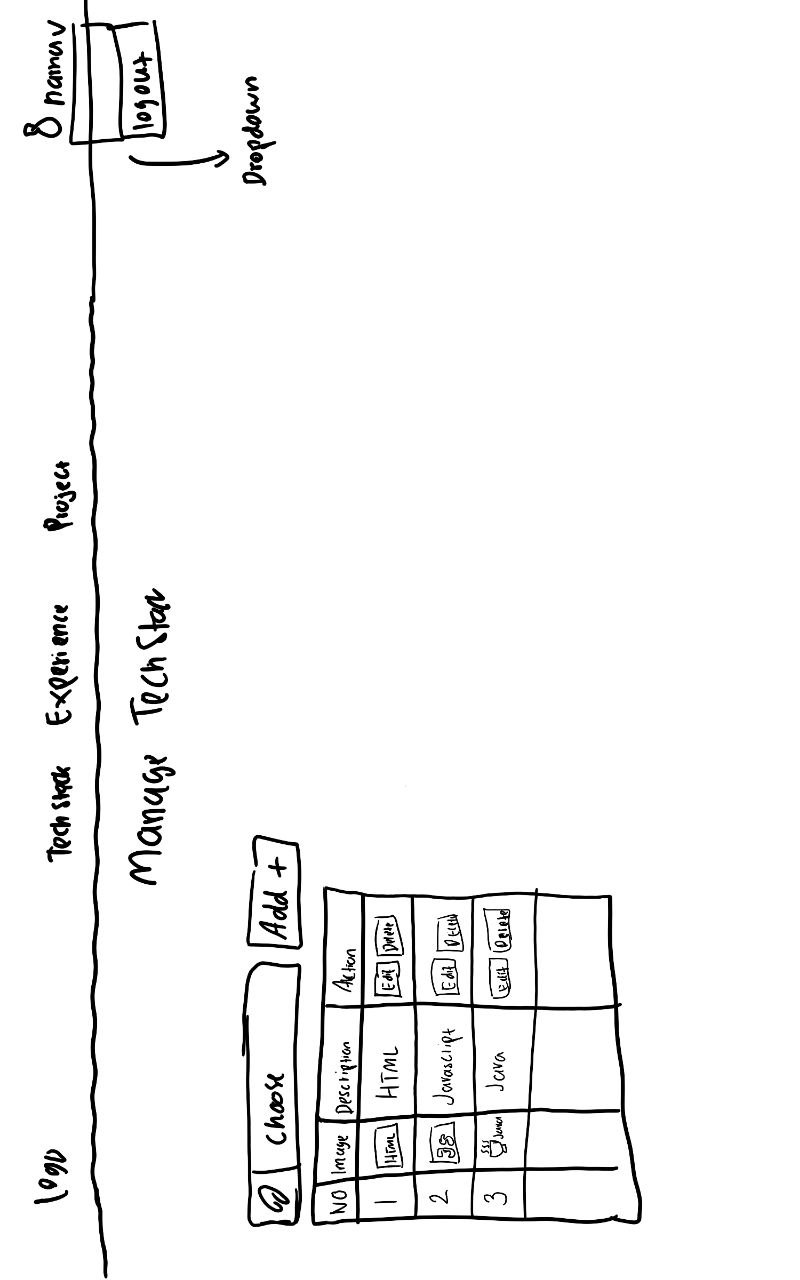 logo Tech Stack Experience Project nama v
logout
Manage Tech Stack
Dropdown
choose Add +
NO Image Description Action
1 HTML HTML Edit Delete
2 JS Javascript Edit Delete
3 Java Java Edit Delete